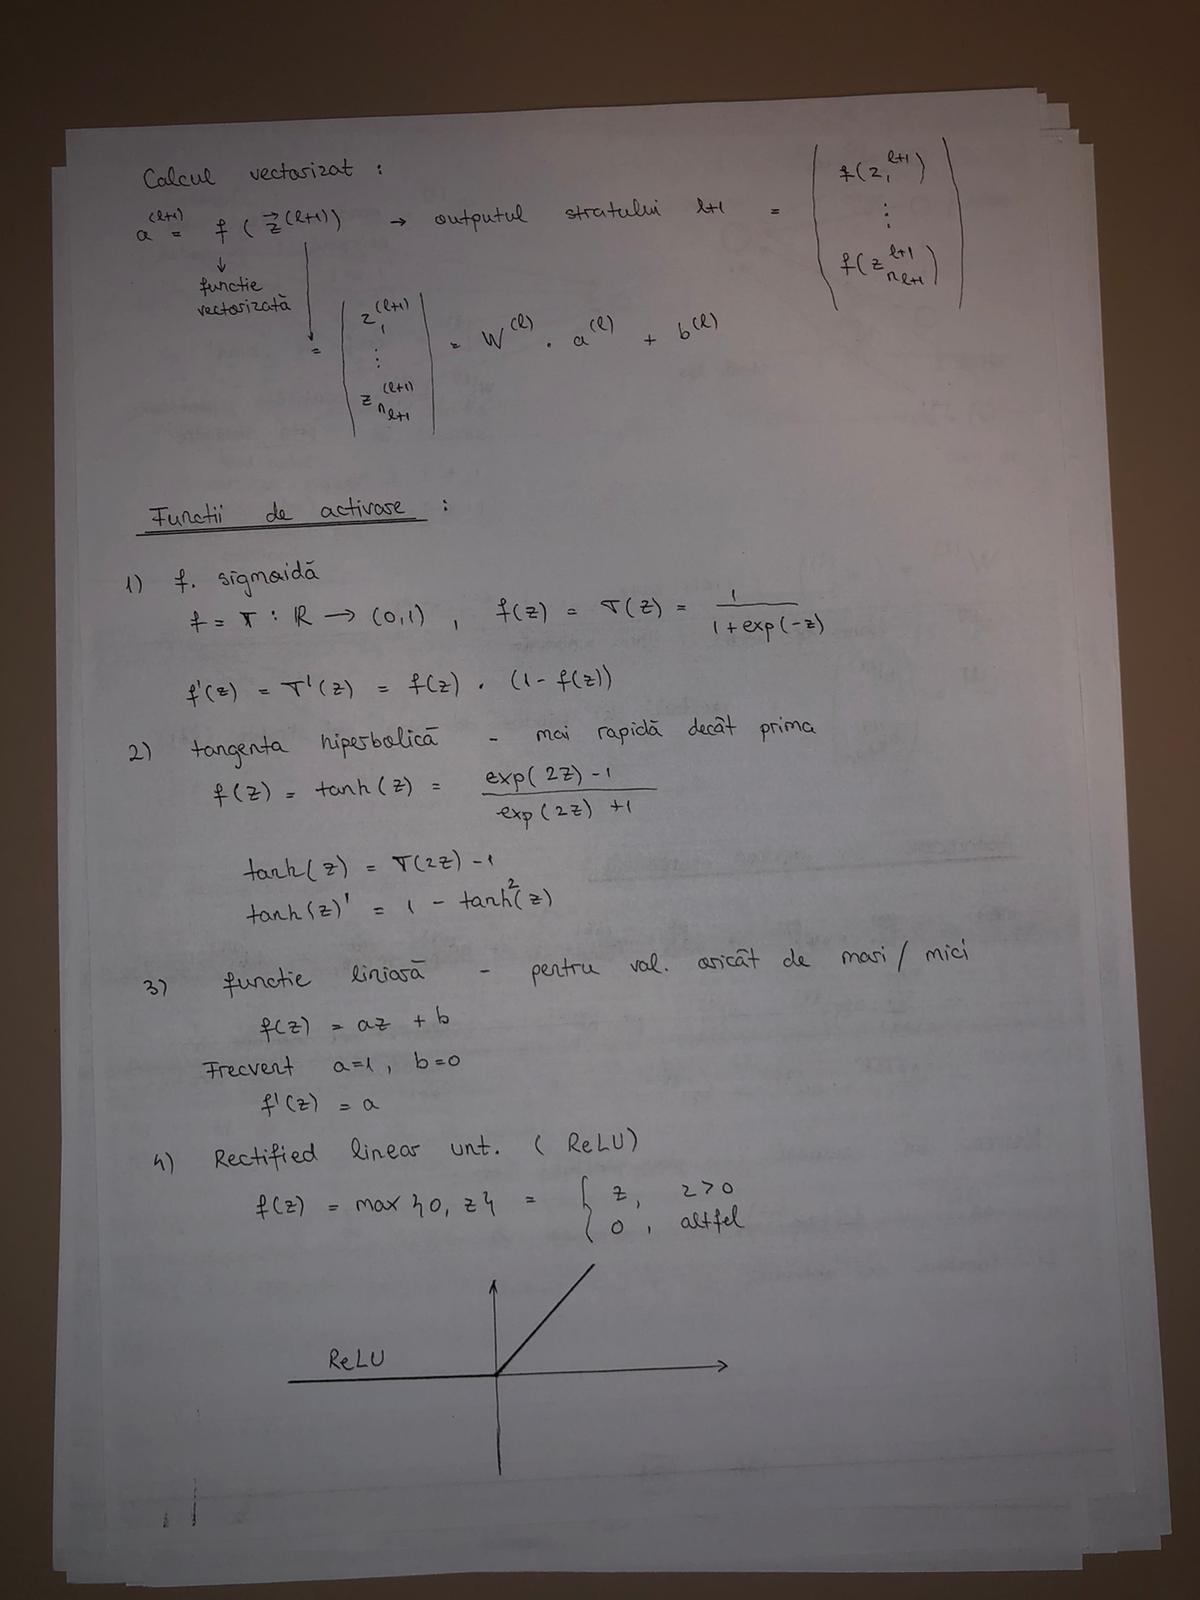 Calcul vectorizat :
a^(l+1) = f ( z⃗^(l+1) ) → outputul stratului l+1 = ( f(z_1^{l+1}) ⋮ f(z_{n_{l+1}}^{l+1}) )
↓
functie
vectorizată
= ( z_1^(l+1) ⋮ z_{n_{l+1}}^(l+1) ) = W^(l) · a^(l) + b^(l)
Functii de activare :
1) f. sigmoidă
f = σ : ℝ → (0,1) , f(z) = σ(z) = 1 / (1 + exp(-z))
f'(z) = σ'(z) = f(z) · (1 - f(z))
2) tangenta hiperbolică - mai rapidă decât prima
f(z) = tanh(z) = (exp(2z) - 1) / (exp(2z) + 1)
tanh(z) = σ(2z) - 1
tanh(z)' = 1 - tanh²(z)
3) functie liniară - pentru val. oricât de mari / mici
f(z) = az + b
Frecvent a=1, b=0
f'(z) = a
4) Rectified linear unt. ( ReLU)
f(z) = max {0, z} = { z, z>0
0, altfel
ReLU